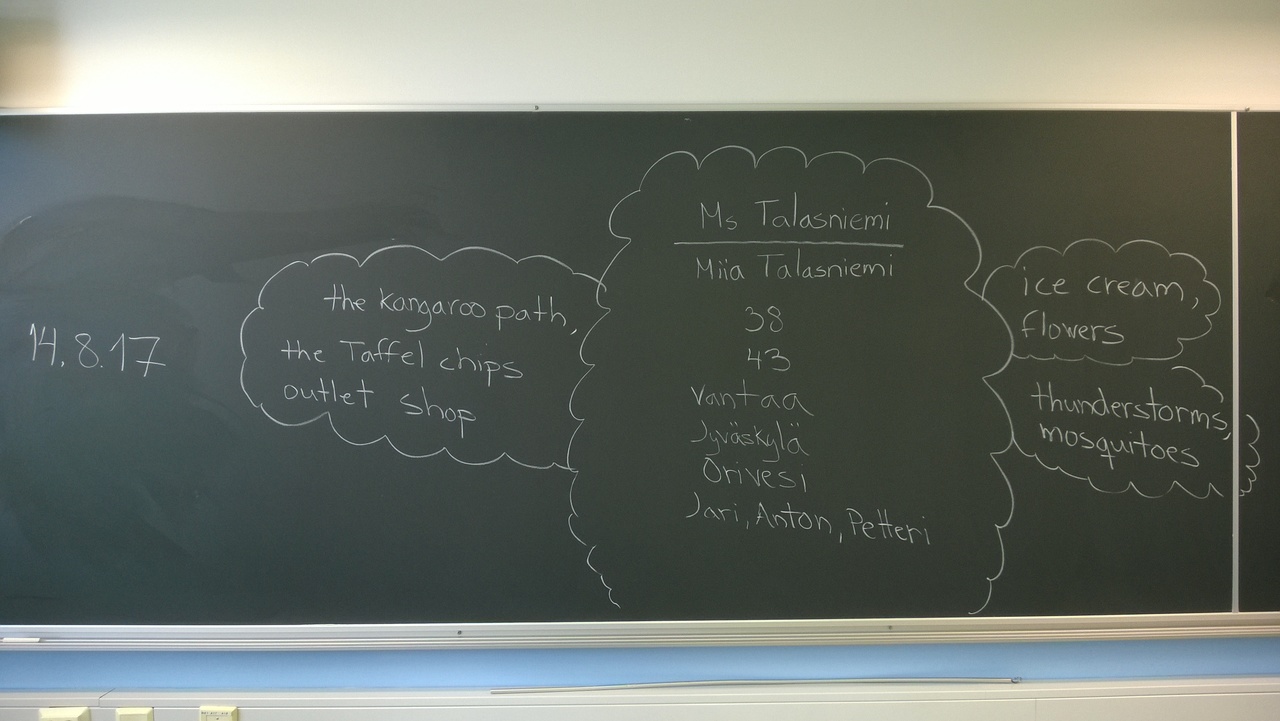 14.8.17
the kangaroo path,
the Taffel chips
outlet shop
Ms Talasniemi
Miia Talasniemi
38
43
Vantaa
Jyväskylä
Orivesi
Jari, Anton, Petteri
ice cream,
flowers
thunderstorms,
mosquitoes